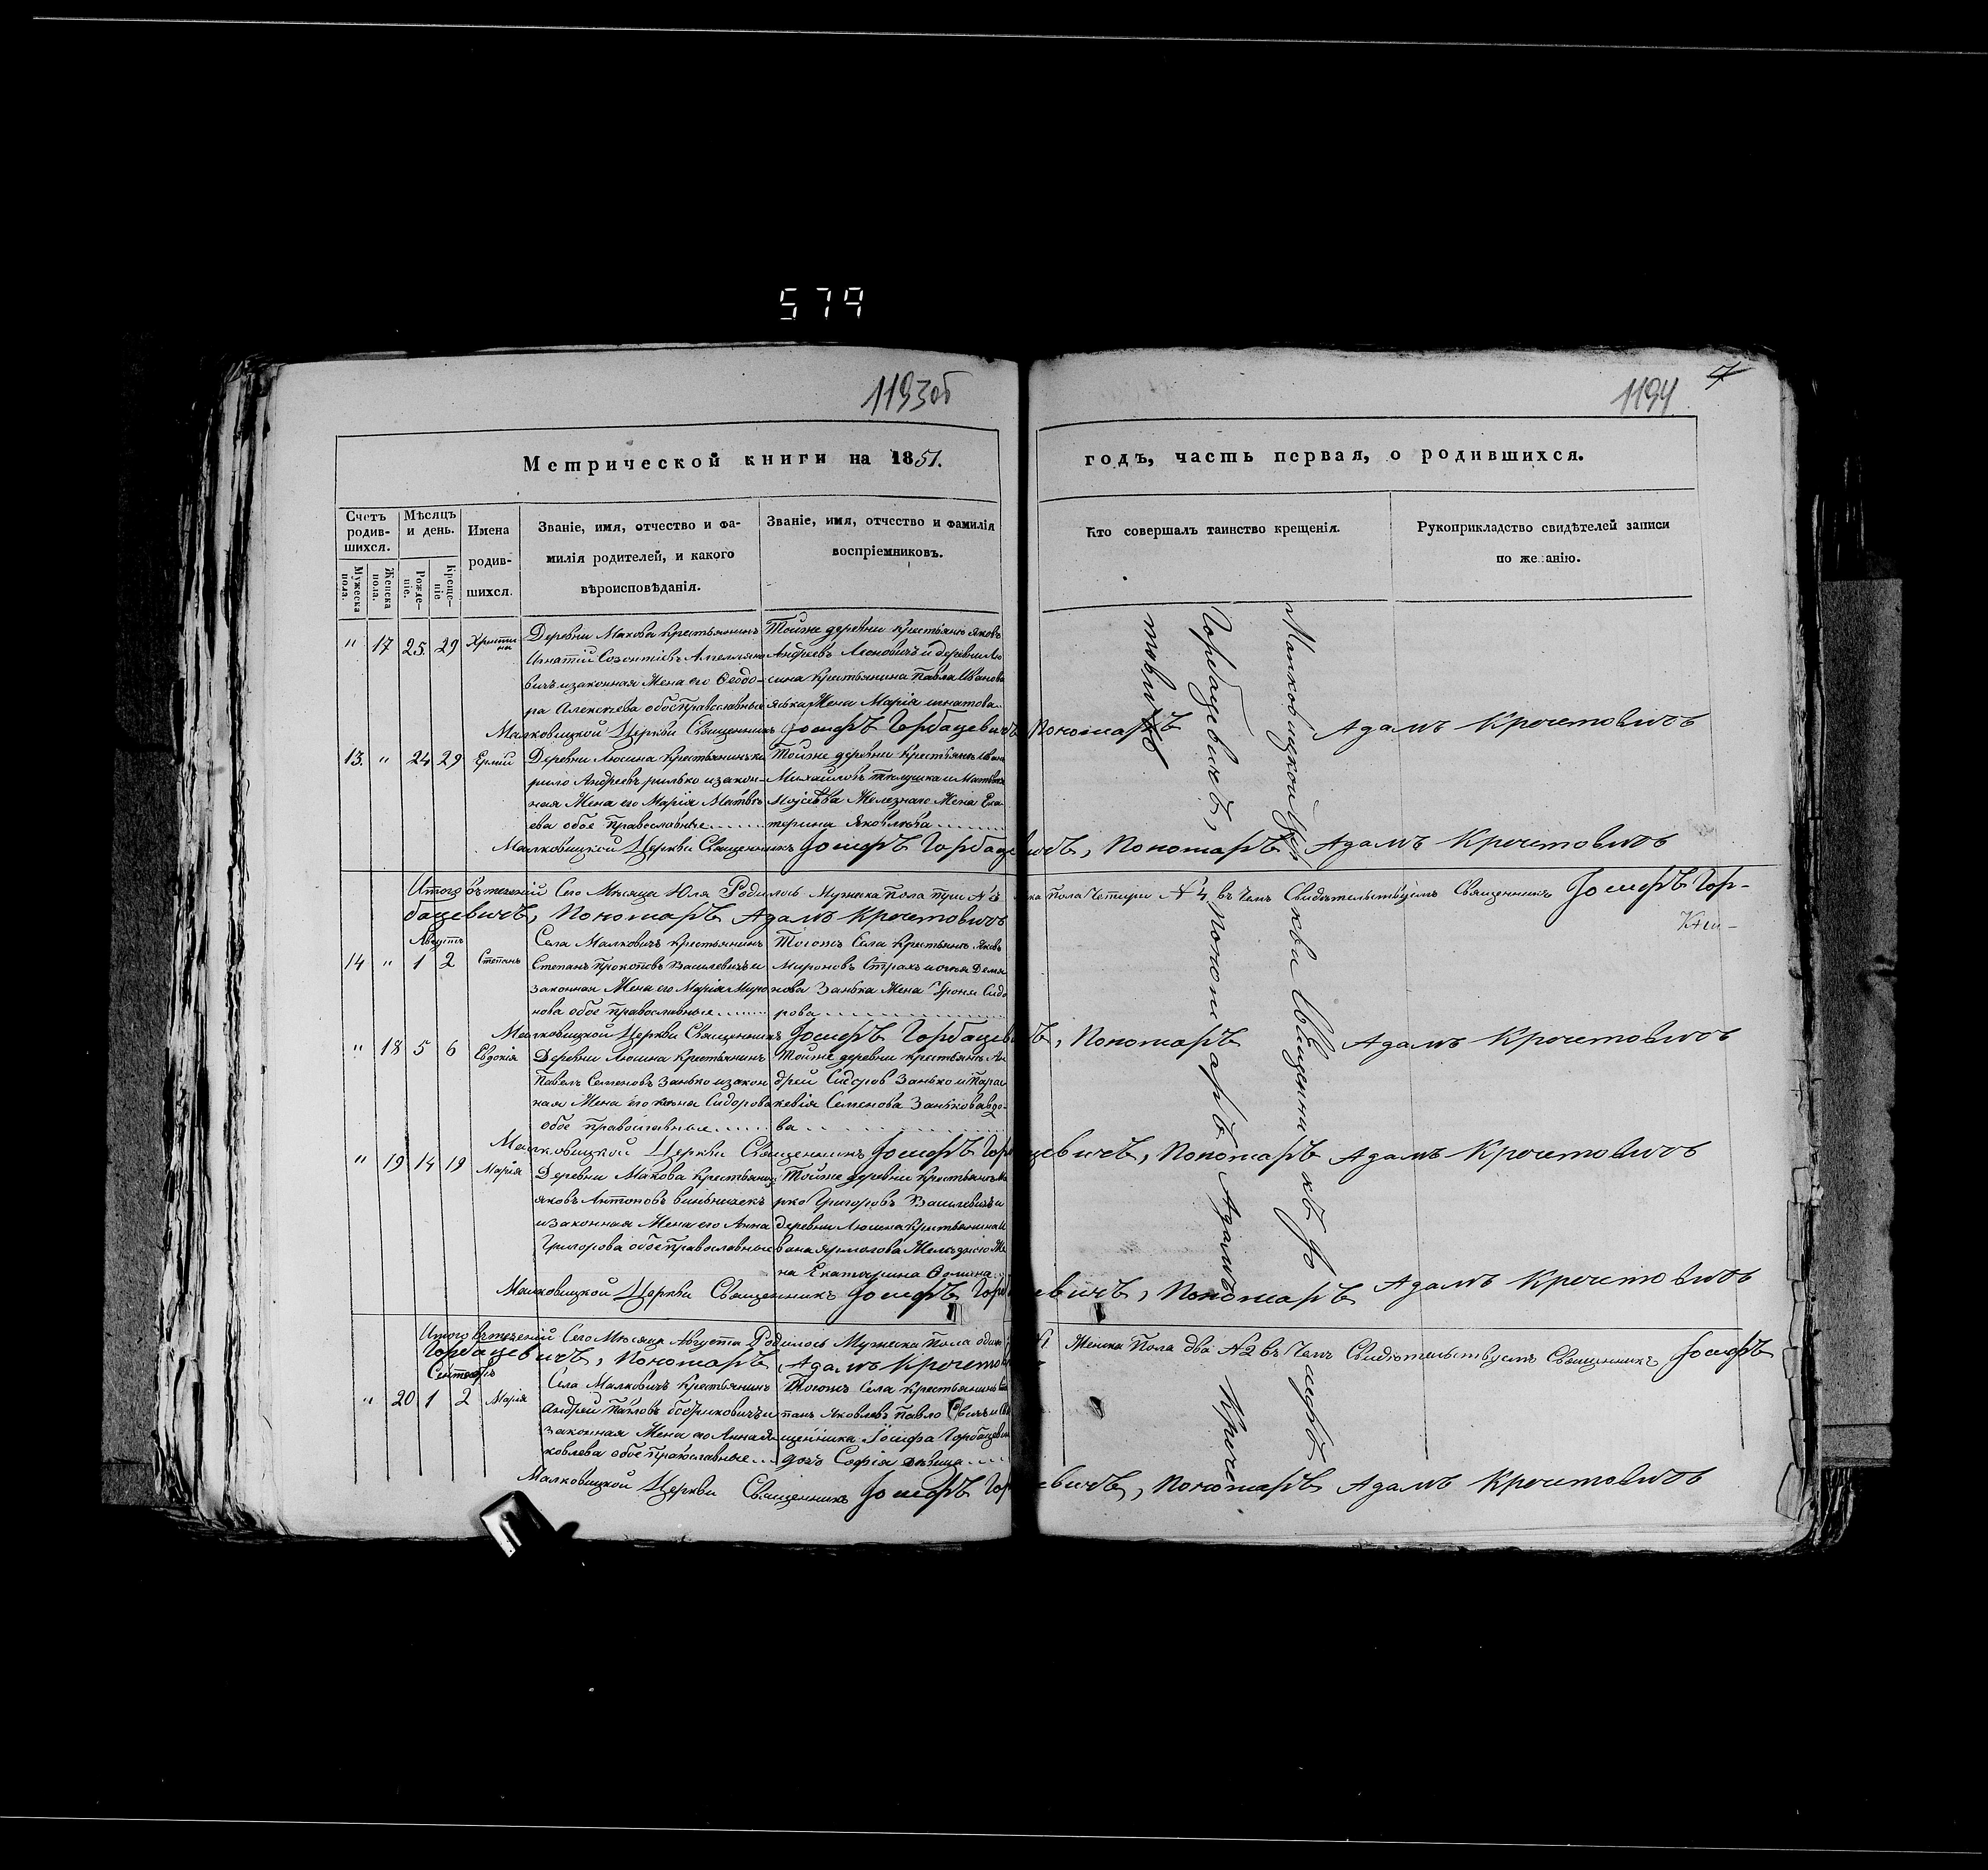 579
1193об
1194
7
Метрической книги на 1851.
годъ, часть первая, о родившихся.
Счетъ родив-шихся.
Мѣсяцъ и день.
Имена родив-шихся.
Званіе, имя, отчество и фа-
милія родителей, и какого
вѣроисповѣданія.
Званіе, имя, отчество и фамилія
воспріемниковъ.
Кто совершалъ таинство крещенія.
Рукоприкладство свидѣтелей записи
по же анію.
Мужеска пола.
Женска пола.
Рожде-ніе.
Креще-ніе
" 17 25. 29
Деревни Макова Крестьянинъ
Игнатій Созонтіевъ
вичъ изаконная Жена его Ѳеодо-
ра Алексѣева обоє православные
Тойже деревни Крестьянъ Яковъ
Андреевъ Леоновичъ и деревни Лю
сина Крестьянина Павла Иванова
Жена Марія Игнатова
Малковицкой Церкви Священникъ Іосифъ Горбацевичъ Пономарь Адамъ Кречетовичъ
13. " 24 29 Ермий
Деревни Люсина Крестьянинъ
рило Андреевъ рилько изакон-
ная Жена его Марія Матвѣ
ева обое православные
Тойже деревни Крестьянъ Иванъ
Михайловъ
Железнаго Жена Ека
терина Яковлева
Малковицкой Церкви Священникъ Іосифъ Горбацевичъ, Пономарь Адамъ Кречетовичъ
Итого втеченій Сего Мѣсяца Юля Родилось Мужска пола три № 3 ска пола Четыри № 4 въ чемъ Свидѣтельствуемъ Священникъ Іосифъ Гор-
бацевичъ, Пономарь Адамъ Кречетовичъ
Августъ
14 " 1 2 Степанъ
Села Малковичъ Крестьянинъ
Степанъ Прокоповъ Василевичъ и
законная Жена его Марія Миро
нова обое православные
Тогожъ Села Крестьянъ Яковъ
Мироновъ Страхъ
нова Занька Жена Сидо
рова
Малковицкой Церкви Священникъ Іосифъ Горбацевичъ, Пономарь Адамъ Кречетовичъ
" 18 5 6 Евдокія
Деревни Люсина Крестьянинъ
Павелъ Семеновъ Занько изакон
ная Жена его Сидорова
обое православные
Тойже деревни крестьянъ Ан
дрей Сидоровъ Занько и Парас
кевія Семенова Занькова вдо-
ва
Малковицкой Церкви Священникъ Іосифъ Горбацевичъ, Пономарь Адамъ Кречетовичъ
" 19 14 19 Марія
Деревни Макова Крестьянинъ
Яковъ Антоновъ
изаконная Жена его Анна
Григорова обое православные
Тойже деревни Крестьянъ Ма
рко Григоровъ Василевичъ и
деревни Люсина Крестьянина И
вана Жe
на Екатерина Ѳомина
Малковицкой Церкви Священникъ Іосифъ Горбацевичъ, Пономарь Адамъ Кречетовичъ
Итого втеченій Сего Мѣсяца Августа Родилось Мужеска Пола одинъ Женска Пола два № 2 въ Чемъ Свидѣтельствуемъ Священникъ Іосифъ
Горбацевичъ, Пономарь Адамъ Кречето
Сентябрь
" 20 1 2 Марія
Села Малковичъ Крестьянинъ
Андрей Павловъ
законная Жена его Анна Я
ковлева обое православные
Тогожъ Села Крестьянинъ
панъ Яковлевъ
щенника Іосифа Горбацевич
дочь Софія дѣвица
Малковицкой Церкви Священникъ Іосифъ Горбацевичъ, Пономарь Адамъ Кречетовичъ
Малковицкой Церкви Священникъ Іосифъ
Горбацевичъ, Пономарь Адамъ Крече
товичъ